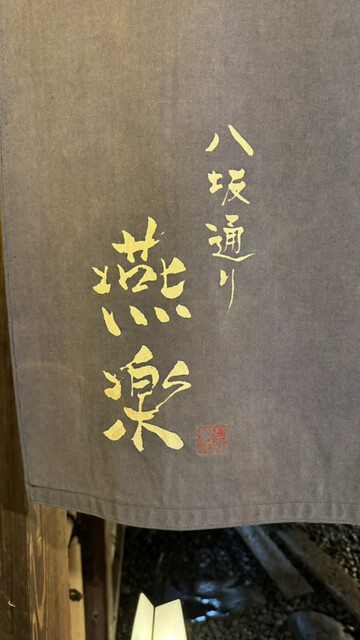 八坂通り
燕楽